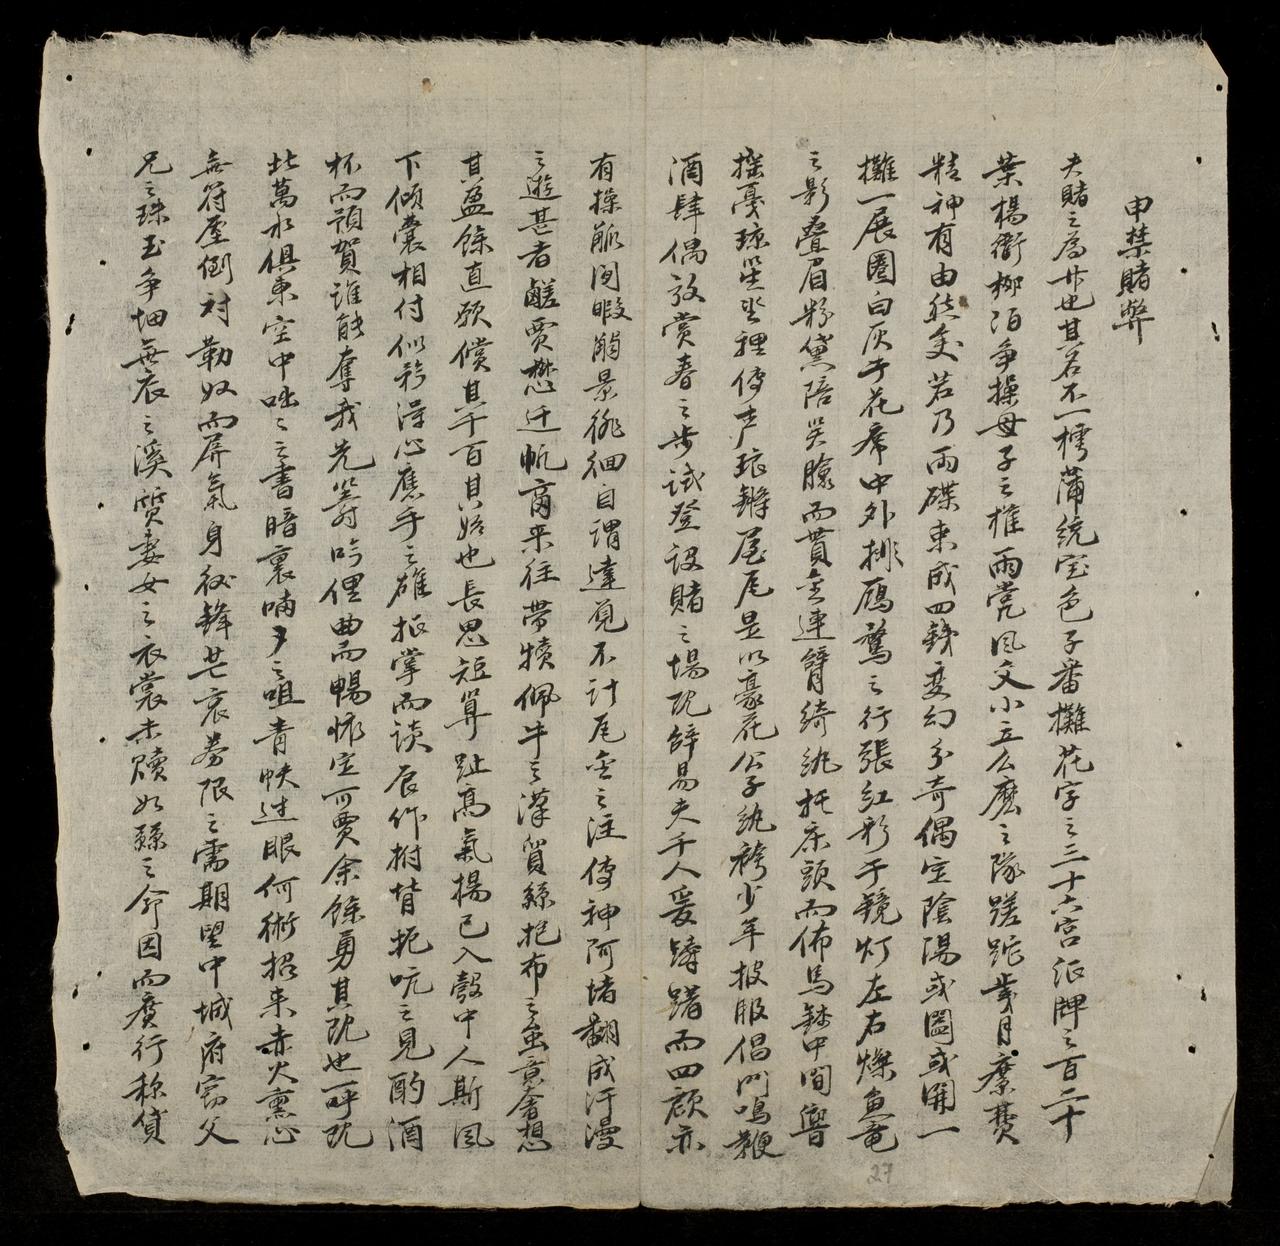 申禁賭弊
夫賭之為弊也其名不一樗蒲統宝色子番攤花字之三十六宮派牌之百二十
葉楊衢柳陌争操母子之権雨党風交小立么麽之隊蹉跎歲月糜費
精神有由然矣若乃兩碟束成四錢変幻分奇偶定陰陽或闔或開一
攤一展圈白灰于花席中外排鴈鶩之行張紅彩于鏡灯左右燦魚竜
之影叠眉粉黛陪笑臉而貫金連臂綺紈托床頭而佈馬鉢中間響
搖戛琼筌坐裡傳声琅鏘尾尾是以豪花公子紈袴少年披服倡門鳴鞭
酒肆偶放賞春之步試登設賭之場既辟易夫千人爰躊躇而四顧亦
有操觚閒暇觴景徘徊自謂達覓不計尾金之注傳神阿堵翻成汗漫
之遊甚者鹺賈懋迁帆商来往帶犢佩牛之漢貿絲抱布之虫意奢想
其盈餘直願償其千百其始也長思短算趾高氣揚已入彀中人斯風
下傾囊相付似矜得心應手之雄抵掌而談辰作拊背扼吭之見酌酒
杯而預賀誰能奪我先籌吟俚曲而暢懷定可賈余餘勇其既也呼既
北萬水俱東空中咄々之書暗裏喃々之咀青蚨过眼何術招来赤火熏心
無符壓倒対勒奴而屏氣身彼鋒芒哀券限之需期望中城府窃父
兄之珠玉争細無衣之溪質妻女之衣裳未贖如縣之命因而廣行称貸
27